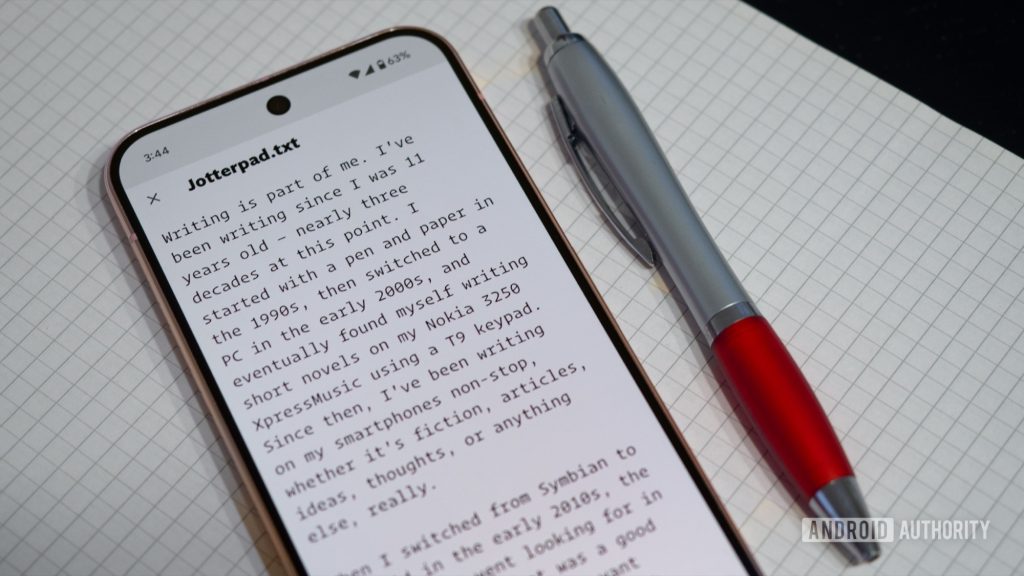 3:44
63%
Jotterpad.txt
Writing is part of me. I've
been writing since I was 11
years old – nearly three
decades at this point. I
started with a pen and paper in
the 1990s, then switched to a
PC in the early 2000s, and
eventually found myself writing
short novels on my Nokia 3250
XpressMusic using a T9 keypad.
Since then, I've been writing
on my smartphones non-stop,
whether it's fiction, articles,
ideas, thoughts, or anything
else, really.
I switched from Symbian to
in the early 2010s, the
looking for in
was a good
ANDROID AUTHORITY